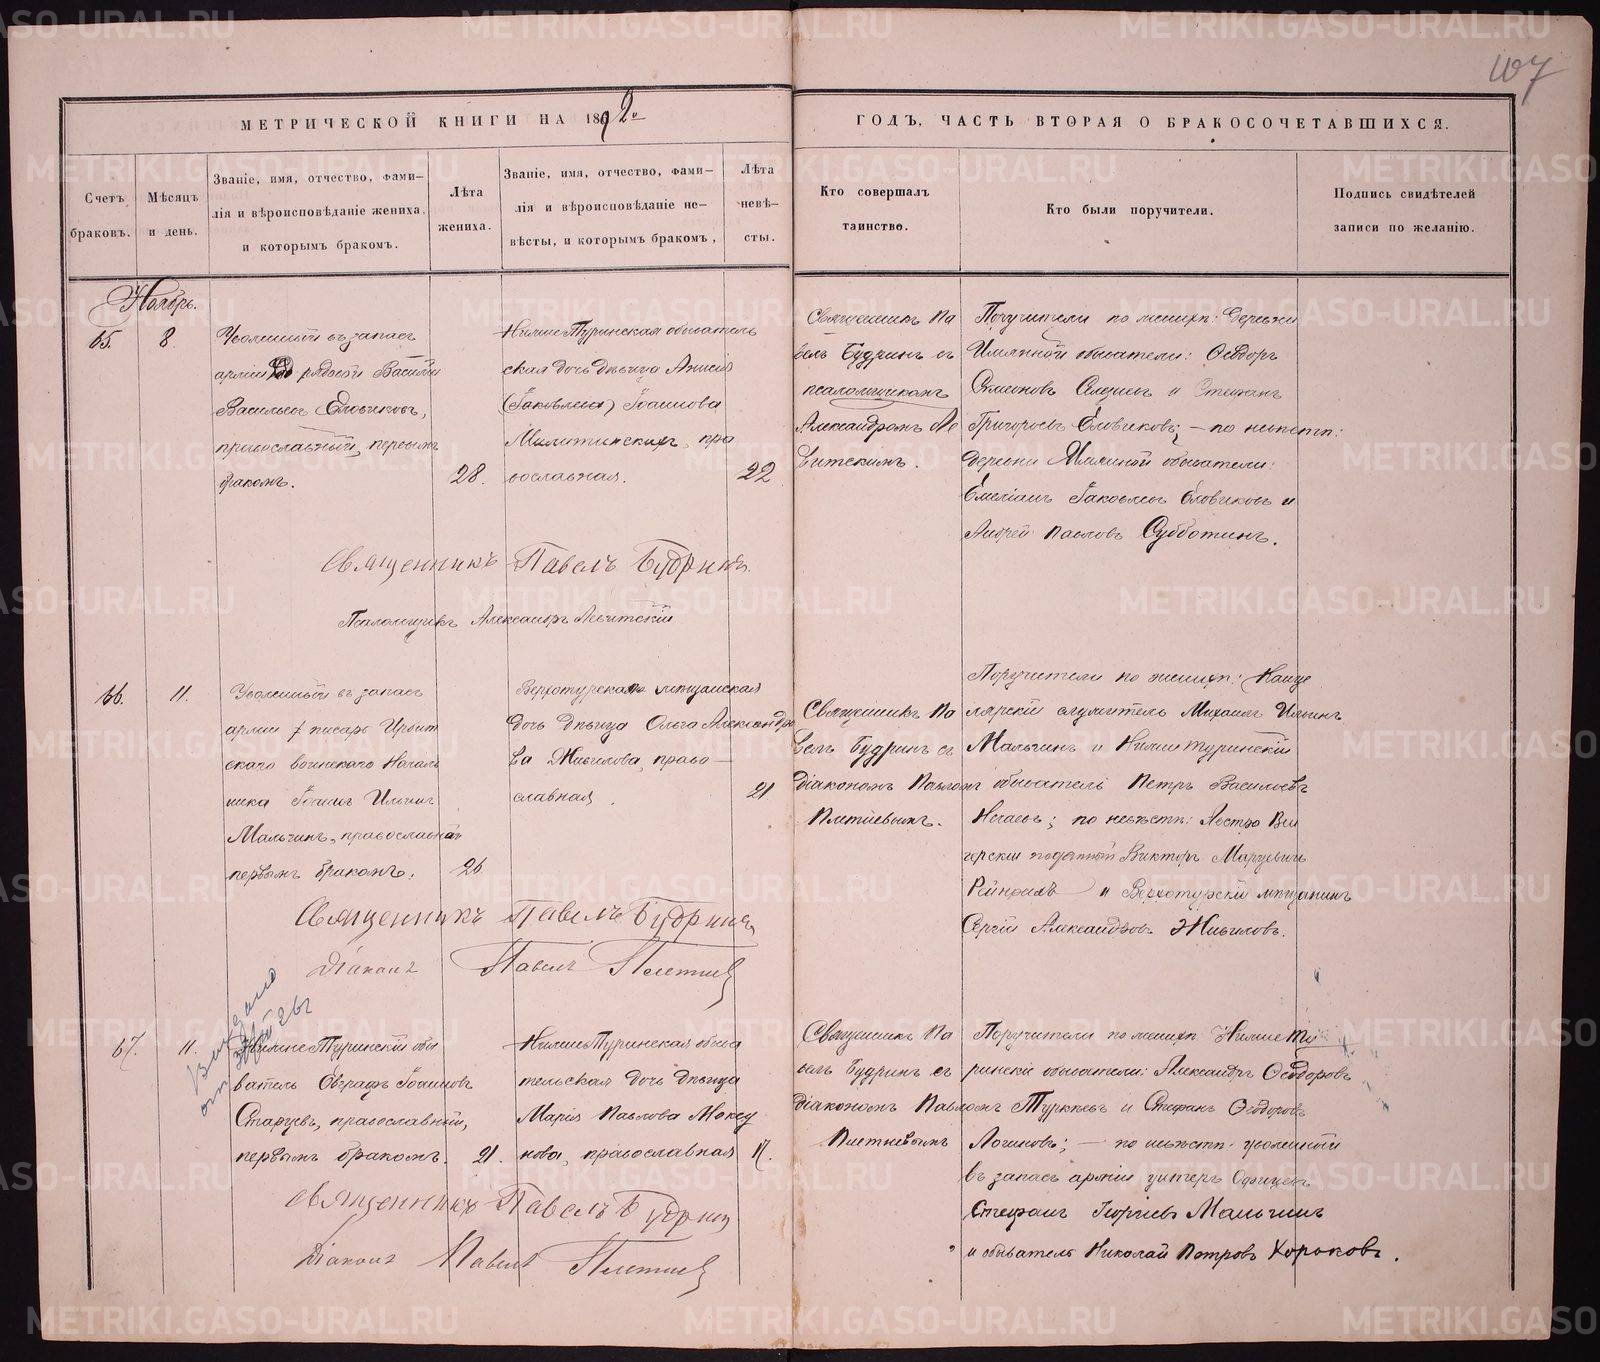 107
МЕТРИЧЕСКОЙ КНИГИ НА 1892
ГОДЪ, ЧАСТЬ ВТОРАЯ О БРАКОСОЧЕТАВШИХСЯ.
Счетъ браковъ.
Мѣсяцъ и день.
Званіе, имя, отчество, фами-
лія и вѣроисповѣданіе жениха,
и которымъ бракомъ.
Лѣта
жениха.
Званіе, имя, отчество, фами-
лія и вѣроисповѣданіе не-
вѣсты, и которымъ бракомъ,
Лѣта
невѣ-
сты.
Кто совершалъ
таинство.
Кто были поручители.
Подпись свидѣтелей
записи по желанію.
Ноябрь.
65.
8
Уволенный въ запасъ
арміи рядовой Василій
Васильевъ Еловиковъ,
православный, первымъ
бракомъ.
28.
Нижне Туринская обыватель
ская дочь дѣвица Анисія
(Іаковлева) Іоаннова
православная.
22
Священникъ Па
велъ Будринъ съ
псаломщикомъ
Александромъ Ле
витскимъ.
Поручители по женихѣ: деревни
обыватели: Ѳеодоръ
Симеоновъ и Стефанъ
Григорьевъ Еловиковъ; – по невѣстѣ:
деревни обыватели:
Емеліанъ Іаковлевъ Еловиковъ и
Андрей Павловъ Субботинъ.
Священникъ Павелъ Будринъ.
Псаломщикъ Александръ Левитскій
66.
11.
Уволенный въ запасъ
арміи писарь Ирбит
скаго воинскаго Началь
ника Іоаннъ Ильинъ
Мальгинъ, православный
первымъ бракомъ.
26
Верхотурская мѣщанская
дочь дѣвица Ольга Александро
ва Живилова, право
славная.
21
Священникъ Па
велъ Будринъ съ
діакономъ Павломъ
Плетневымъ.
Поручители по женихѣ: Канце
лярскій служитель Михаилъ Ильинъ
Мальгинъ и Нижнетуринскій
обыватель Петръ Васильевъ
по невѣстѣ: Австро Вен
герскій подданный Викторъ
и Верхотурскій мѣщанинъ
Сергій Александровъ Живиловъ.
Священникъ Павелъ Будринъ
Діаконъ Павелъ Плетневъ
67.
11.
Нижне Туринскій обы
ватель Евграфъ Іоанновъ
Старцевъ, православный,
первымъ бракомъ.
21.
Нижне Туринская обыва
тельская дочь дѣвица
Марія Павлова Моксу
нова, православная
17.
Священникъ Па
велъ Будринъ съ
діакономъ Павломъ
Плетневымъ
Поручители по женихѣ Нижне Ту
ринскіе обыватели: Александръ Ѳеодоровъ
и Стефанъ Ѳеодоровъ
Логиновъ; – по невѣстѣ: уволенный
въ запасъ арміи унтеръ Офицеръ
Стефанъ Георгіевъ Мальгинъ
и обыватель Николай Петровъ Хорьковъ.
Священникъ Павелъ Будринъ
Діаконъ Павелъ Плетневъ
METRIKI.GASO-URAL.RU